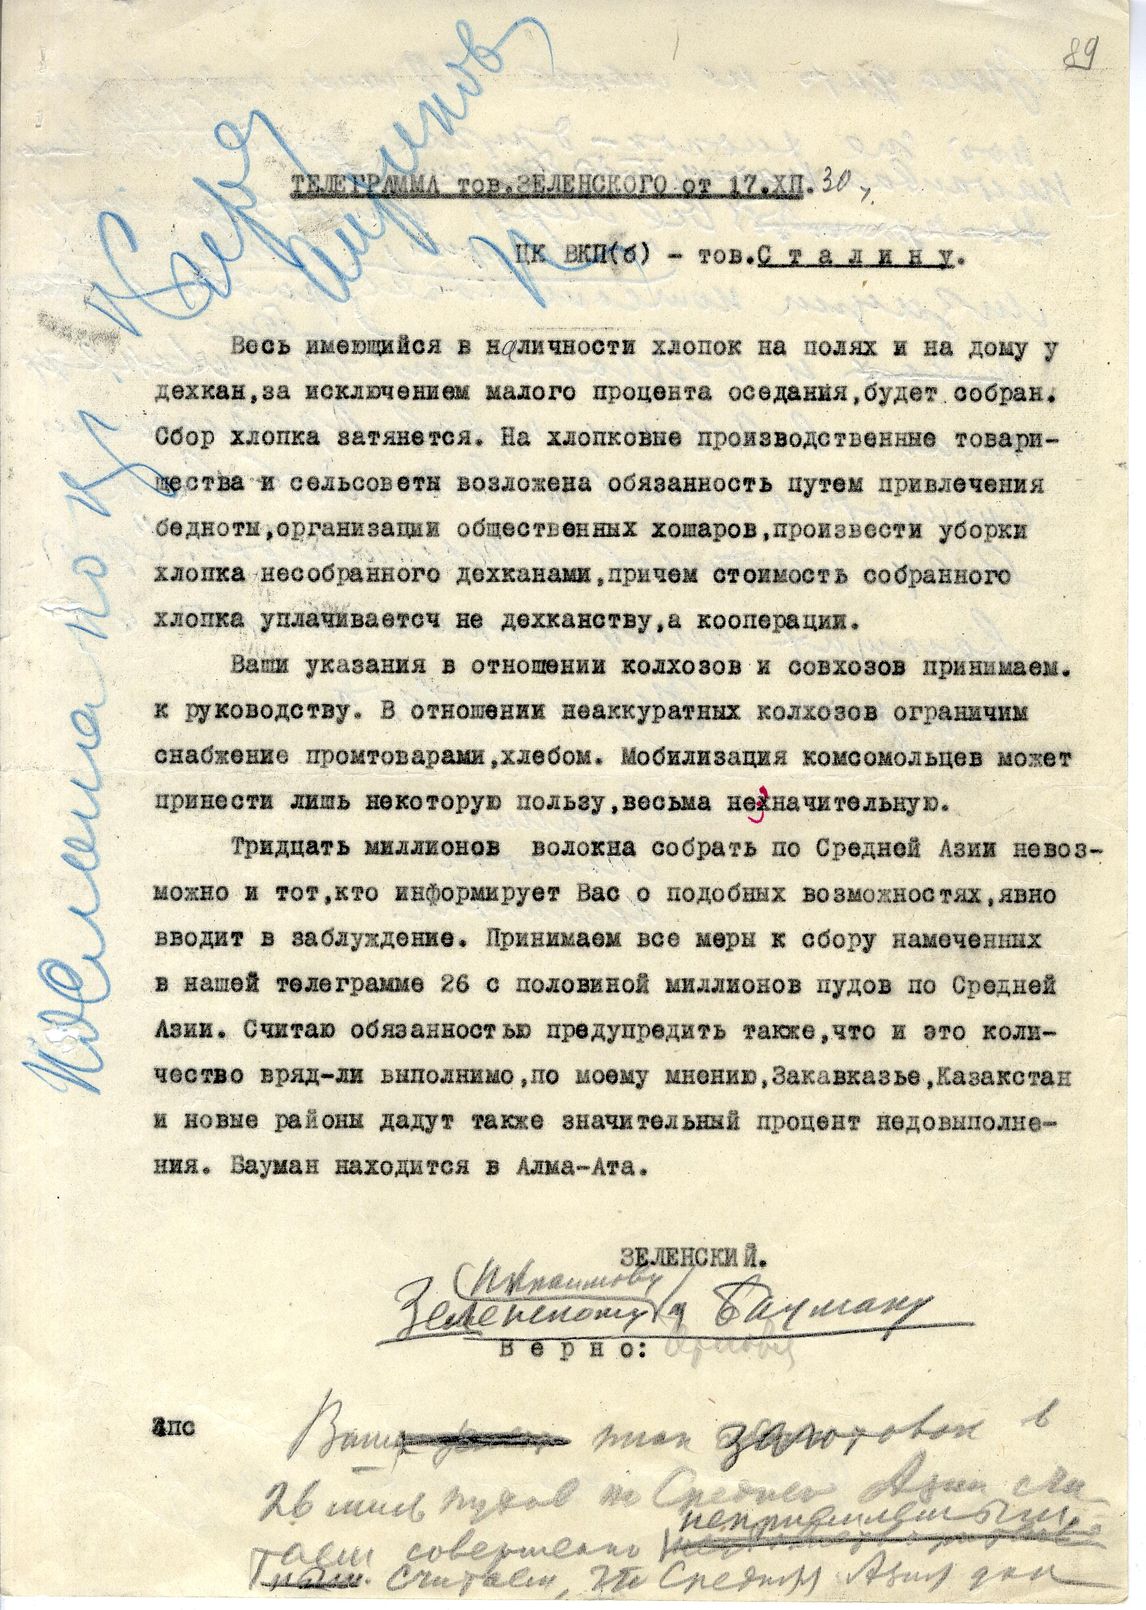 89
ТЕЛЕГРАММА тов.ЗЕЛЕНСКОГО от 17.ХП.30г.
ЦК ВКП(б) - тов.С т а л и н у.
Весь имеющийся в наличности хлопок на полях и на дому у
дехкан,за исключением малого процента оседания,будет собран.
Сбор хлопка затянется. На хлопковые производственные товари-
щества и сельсоветы возложена обязанность путем привлечения
бедноты,организации общественных хошаров,произвести уборки
хлопка несобранного дехканами,причем стоимость собранного
хлопка уплачиваетсч не дехканству,а кооперации.
Ваши указания в отношении колхозов и совхозов принимаем.
к руководству. В отношении неаккуратных колхозов ограничим
снабжение промтоварами,хлебом. Мобилизация комсомольцев может
принести лишь некоторую пользу,весьма незначительную.
Тридцать миллионов волокна собрать по Средней Азии невоз-
можно и тот,кто информирует Вас о подобных возможностях,явно
вводит в заблуждение. Принимаем все меры к сбору намеченных
в нашей телеграмме 26 с половиной миллионов пудов по Средней
Азии. Считаю обязанностью предупредить также,что и это коли-
чество вряд-ли выполнимо,по моему мнению,Закавказье,Казакстан
и новые районы дадут также значительный процент недовыполне-
ния. Бауман находится в Алма-Ата.
ЗЕЛЕНСКИЙ.
Зеленскому и Бауману
В е р н о:
4пс
Ваш план заготовок в
26 мил пудов по Средней Азии счи-
неприемлемым
таем совершенно
Считаем, что Средняя Азия дол